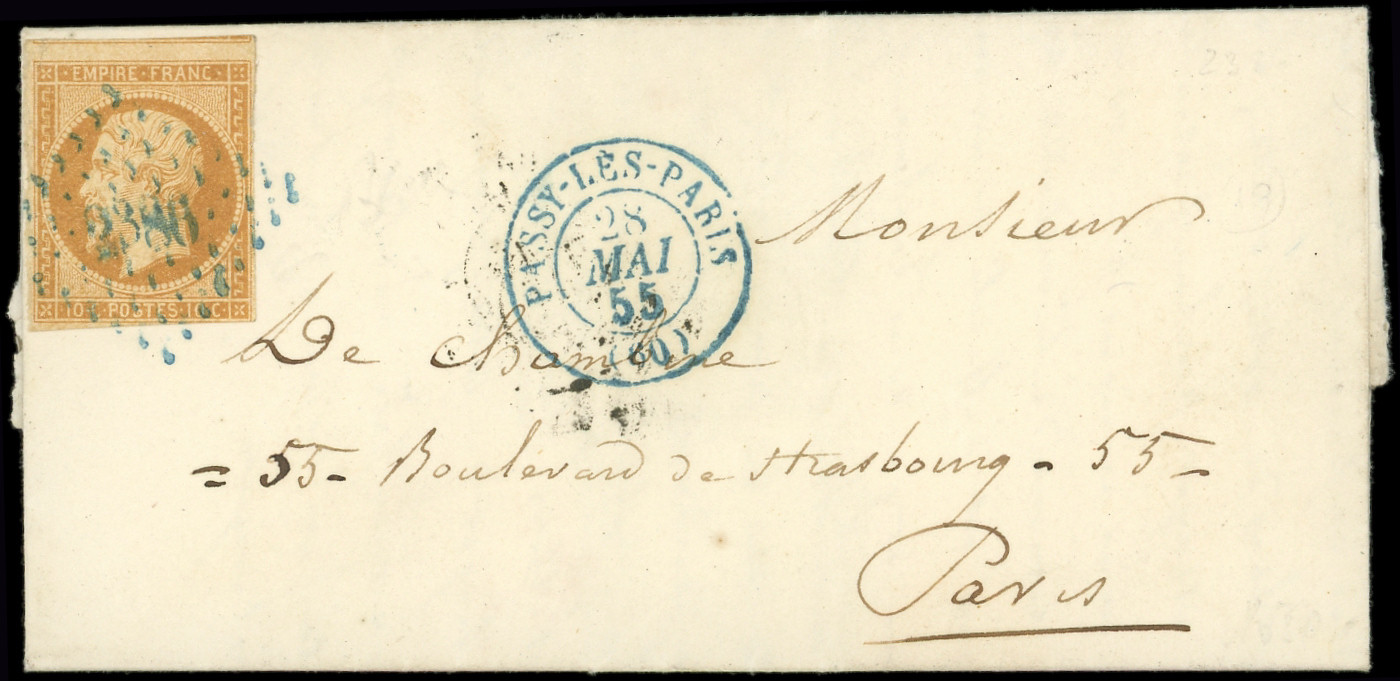 EMPIRE FRANC
10 C POSTES 10 C
2386
PASSY-LÈS-PARIS
28
MAI
55
(60)
Monsieur
De Chambine
= 55 - Boulevard de Strasbourg - 55 -
Paris